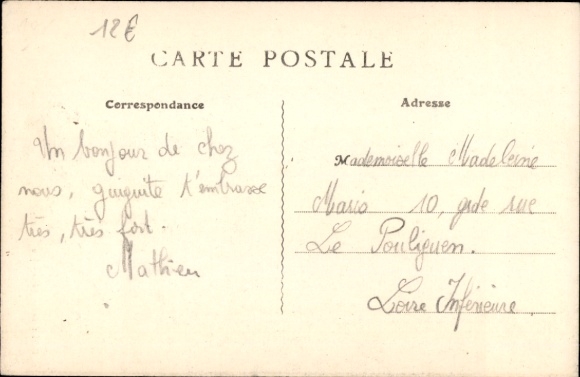 12€
CARTE POSTALE
Correspondance
Adresse
Un bonjour de chez
nous, guiguite t'embrasse
très, très fort.
Mathieu
Mademoiselle Madeleine
Maris 10, gde rue
Le Pouliguen.
Loire Inférieure